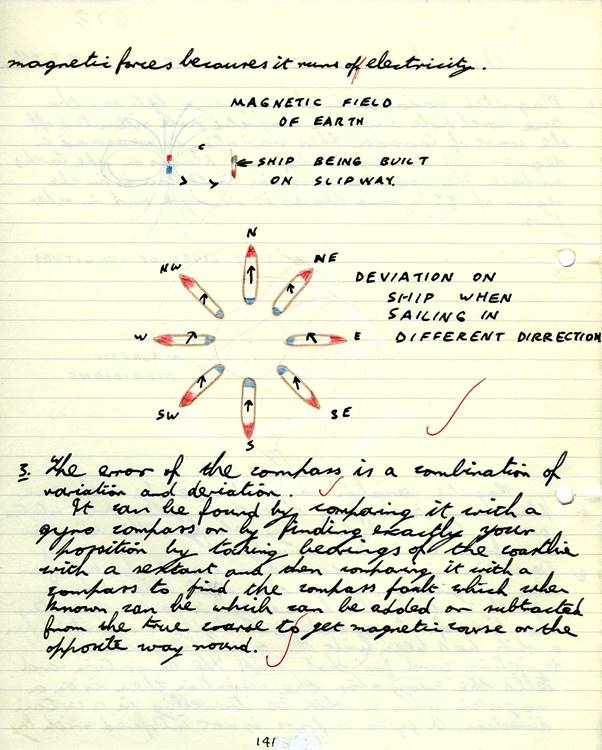 magnetic forces becaures it runs off electricity.
MAGNETIC FIELD
OF EARTH
SHIP BEING BUILT
ON SLIPWAY.
N
NW
NE
DEVIATION ON
SHIP WHEN
SAILING IN
DIFFERENT DIRRECTION
W
E
SW
SE
S
3. The error of the compass is a combination of
variation and deviation.
It can be found by comparing it with a
gyro compass or by finding exactly your
popsition by taking bearings of the coastlie
with a sextant and then comparing it with a
compass to find the compass fault which when
known can be which can be added or subtracted
from the true coarse to get magnetic course or the
opposite way round.
141